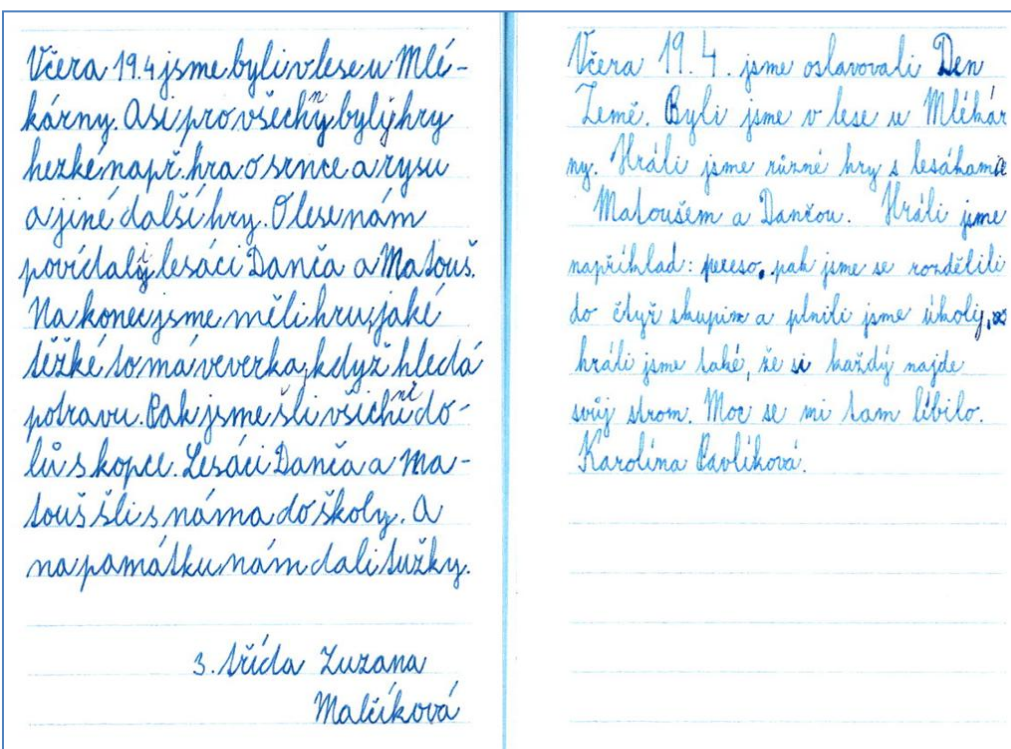 Včera 19.4 jsme byli v lese u Mlé-
kárny. Asi pro všechny byly hry
hezké např. hra o srnce a rysu
a jiné další hry. O lese nám
povídali lesáci Danča a Matouš.
Na konec jsme měli hru, jaké
těžké to má veverka, když hledá
potravu. Pak jsme šli všichni do-
lů s kopce. Lesáci Danča a Ma-
touš šli s náma do školy. A
na památku nám dali tužky.
3. třída Zuzana
Malčíková
Včera 19. 4. jsme oslavovali Den
Země. Byli jsme v lese u Mlékár
ny. Hráli jsme různé hry s lesákama
Matoušem a Dančou. Hráli jsme
například: pexeso, pak jsme se rozdělili
do čtyř skupin a plnili jsme úkoly,
hráli jsme také, že si každý najde
svůj strom. Moc se mi tam líbilo.
Karolína Pavlíková.